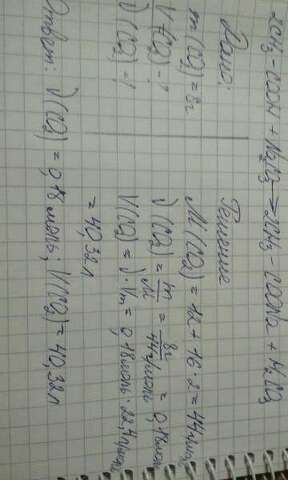 2CH₃-COOH + Na₂CO₃ = 2CH₃-COONa + H₂CO₃
Дано:
m(CO₂) = 8г
V(CO₂) - ?
ν(CO₂) - ?
Решение
M(CO₂) = 12 + 16·2 = 44 г/моль
ν(CO₂) = m/M = 8г/44г/моль = 0,18 моль
V(CO₂) = ν·Vm = 0,18 моль · 22,4 л/моль
= 40,32л
Ответ: ν(CO₂) = 0,18 моль; V(CO₂) = 40,32л